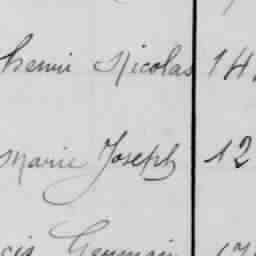 henri Nicolas 14
Marie Joseph 12
Germain 17